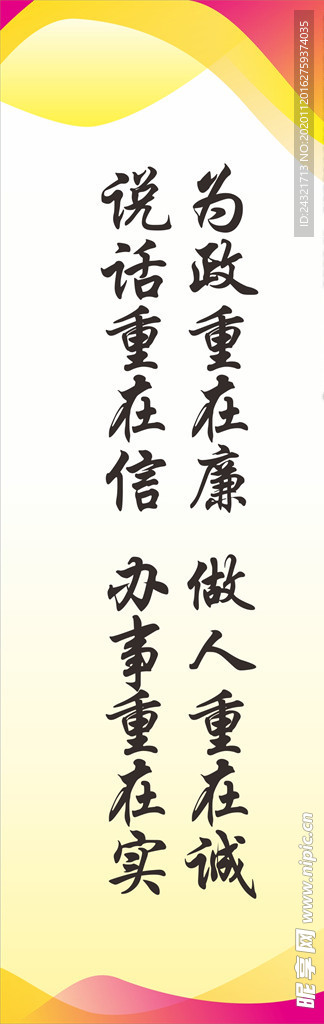 为政重在廉 做人重在诚
说话重在信 办事重在实
ID:24321713 NO:20201120162759374035
昵享网 www.nipic.cn